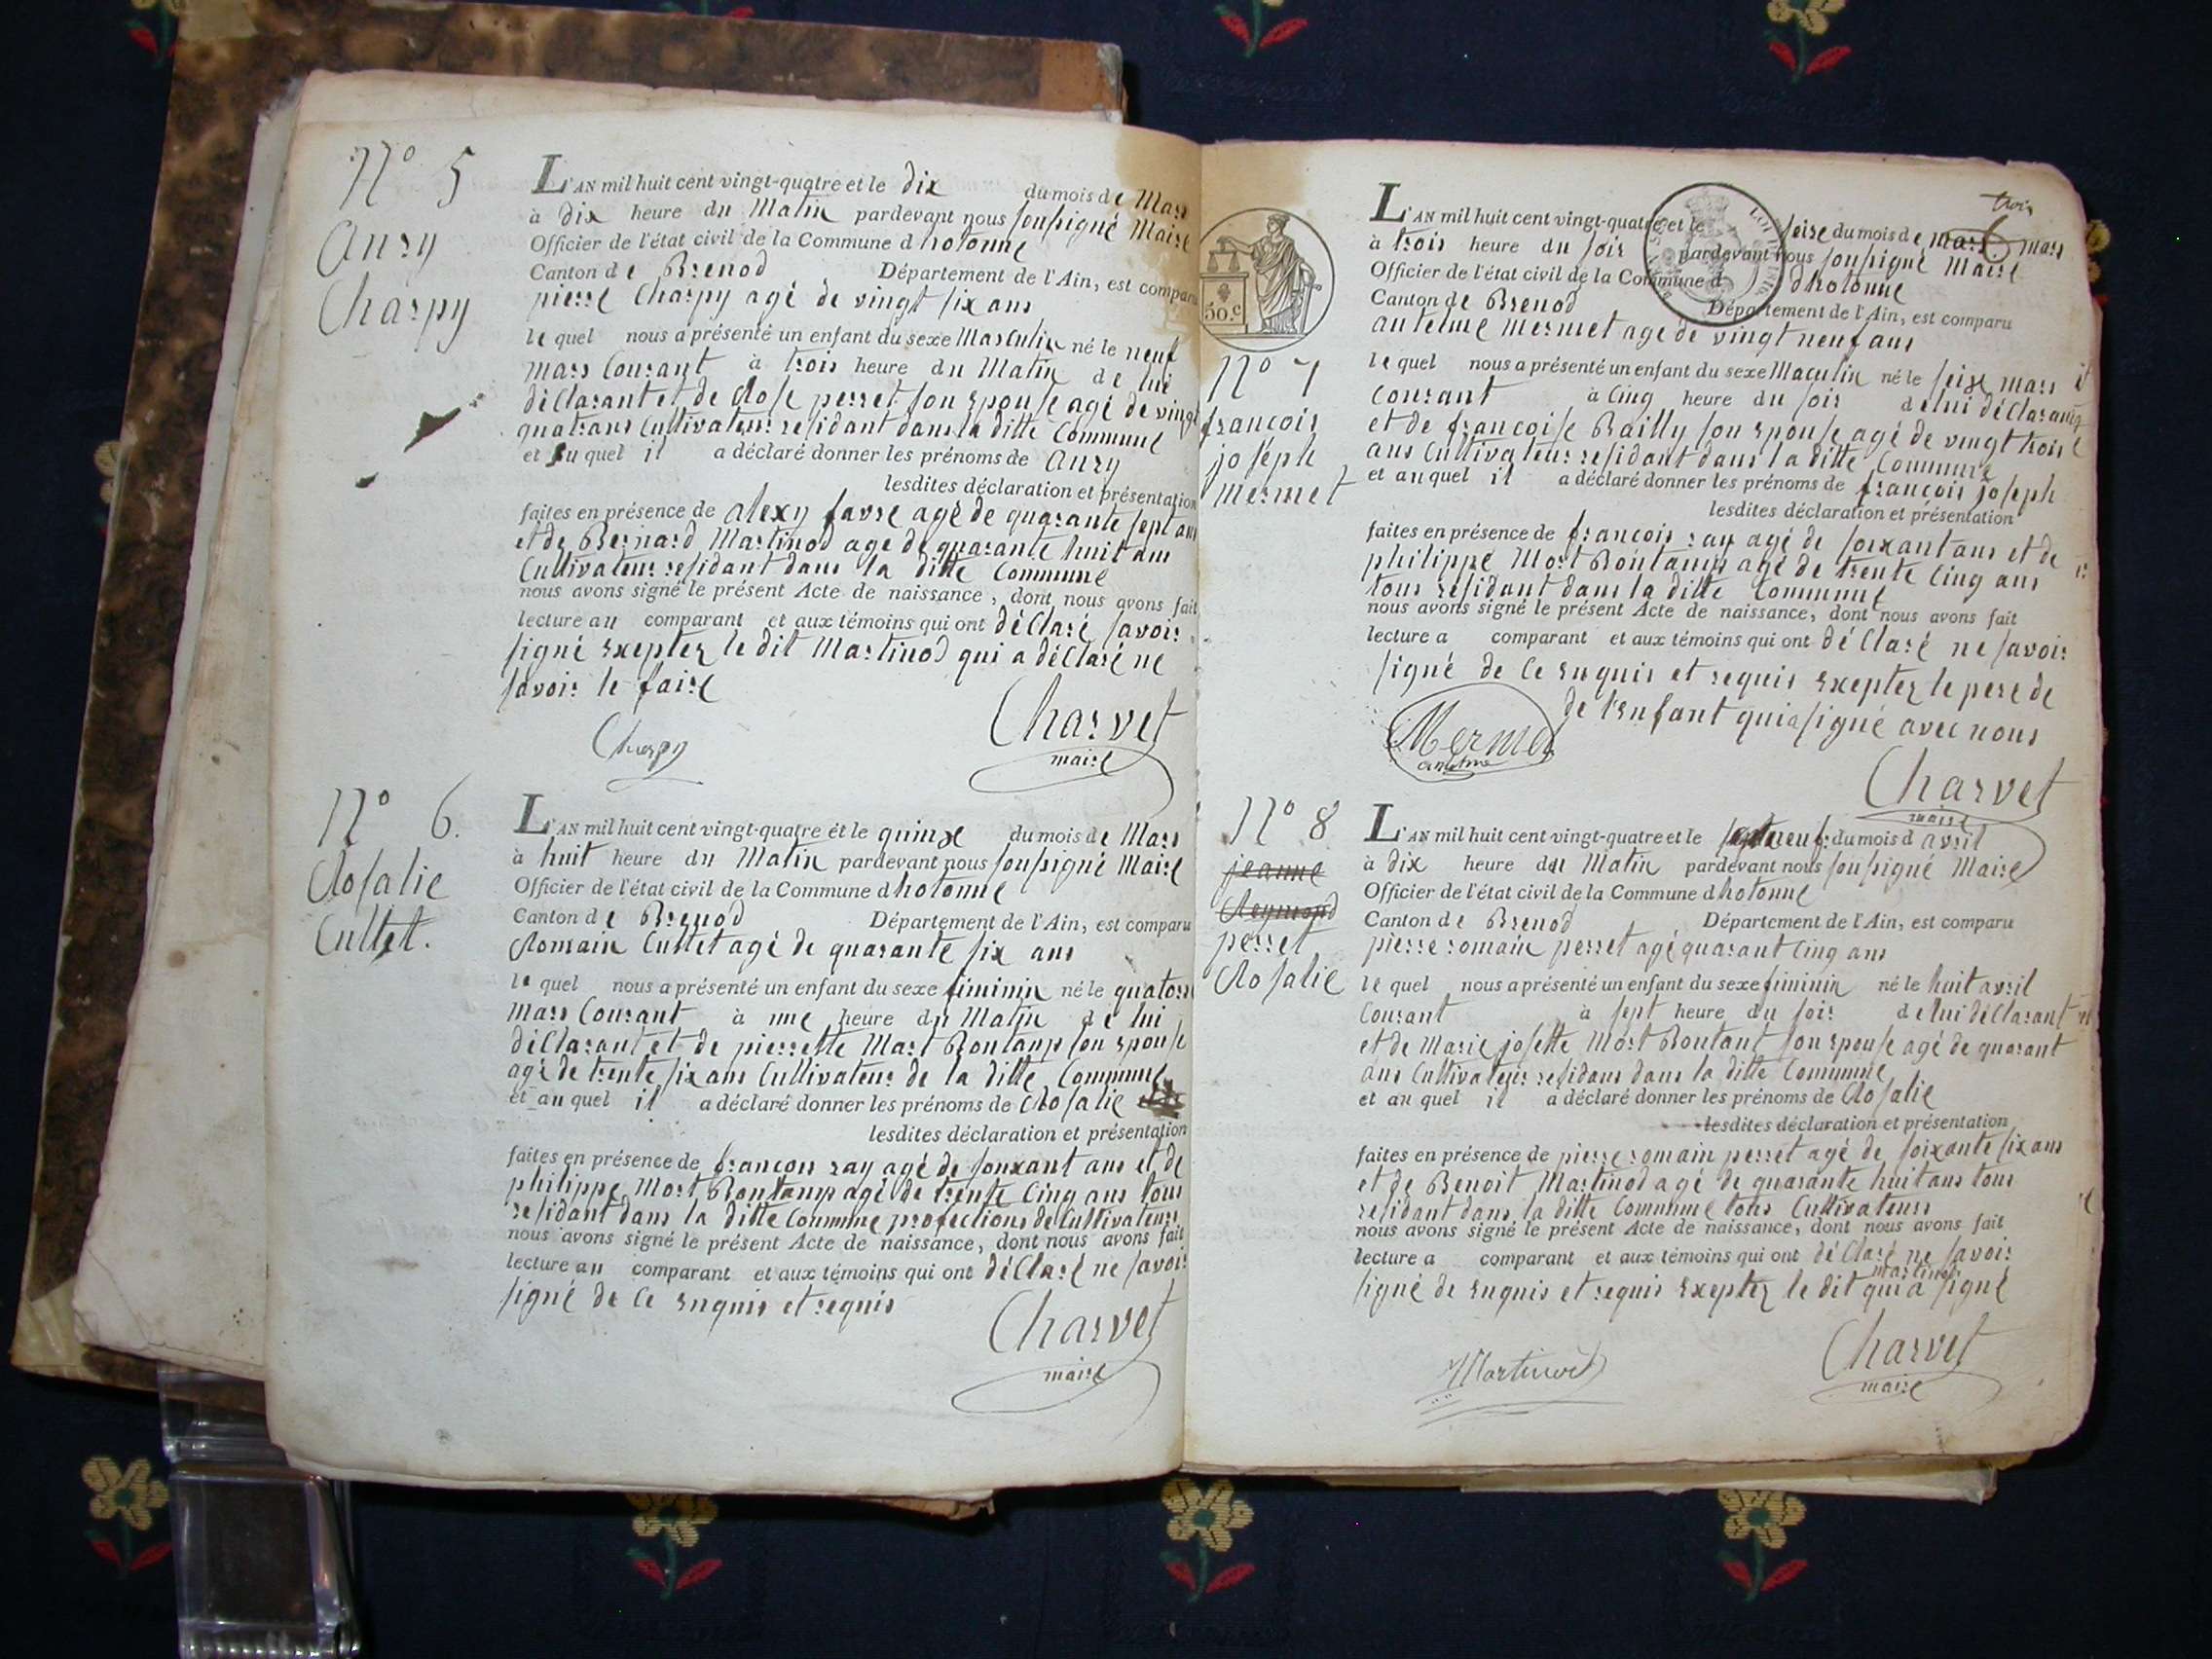 N° 5
Anry
Charpy
L'AN mil huit cent vingt-quatre et le dix du mois de Mars
à dix heure du Matin pardevant nous soussigné Maire
Officier de l'état civil de la Commune d hotonne
Canton de Brenod Département de l'Ain, est comparu
pierre Charpy agé de vingt six ans
le quel nous a présenté un enfant du sexe Masculin né le neuf
mars Courant à trois heure du Matin de lui
déClarant et de Rose perret son epouse agé de vingt
quatrans Cultivateur residant dans la ditte Commune
et au quel il a déclaré donner les prénoms de anry
lesdites déclaration et présentation
faites en présence de alexy favre agé de quarante sept ans
et de Bernard Martinod age de quarante huit ans
Cultivateur residant dans la ditte Commune
nous avons signé le présent Acte de naissance, dont nous avons fait
lecture au comparant et aux témoins qui ont déClaré savoir
signé exeptez le dit Martinod qui a déClaré ne
savoir le faire
Charpy
Charvet
maire
N° 6.
Rosalie
Cullet.
L'AN mil huit cent vingt-quatre et le quinze du mois de Mars
à huit heure du Matin pardevant nous soussigné Maire
Officier de l'état civil de la Commune d hotonne
Canton de Brenod Département de l'Ain, est comparu
Romain Cullet agé de quarante six ans
le quel nous a présenté un enfant du sexe fiminin né le quatorze
mars Courant à une heure du Matin de lui
déClarant et de pierrette Mort Bontamp son epouse
agé de trente six ans Cultivateur de la ditte Commune
et au quel il a déclaré donner les prénoms de Rosalie
lesdites déclaration et présentation
faites en présence de francois ray agé de soixant ans et de
philippe Mort Bontamp agé de trente Cinq ans tous
residant dans la ditte Commune profections de Cultivateurs
nous avons signé le présent Acte de naissance, dont nous avons fait
lecture au comparant et aux témoins qui ont déClaré ne savoir
signé de Ce enquis et requis
Charvet
maire
trois
50.c
L'AN mil huit cent vingt-quatre et le seize du mois de mars mars
à trois heure du soir pardevant nous soussigné Maire
Officier de l'état civil de la Commune d dhotonne
Canton de Brenod Département de l'Ain, est comparu
antelme Mermet age de vingt neuf ans
N° 7
francois
joseph
Mermet
le quel nous a présenté un enfant du sexe Maculin né le seize mars
Courant à Cinq heure du soir de lui déClarant
et de francoise Bailly son epouse agé de vingt trois
ans Cultivateur residant dans la ditte Commune
et au quel il a déclaré donner les prénoms de francois joseph
lesdites déclaration et présentation
faites en présence de francois ray agé de soixant ans et de
philippe Mort Bontamp agé de trente Cinq ans
tous residant dans la ditte Commune
nous avons signé le présent Acte de naissance, dont nous avons fait
lecture a comparant et aux témoins qui ont déClaré ne savoir
signé de Ce enquis et requis exeptez le pere de
de l'enfant qui a signé avec nous
Mermet
antelme
Charvet
maire
N° 8
jeanne
Reymond
perret
Rosalie
L'AN mil huit cent vingt-quatre et le neuf du mois d avril
à dix heure du Matin pardevant nous soussigné Maire
Officier de l'état civil de la Commune d hotonne
Canton de Brenod Département de l'Ain, est comparu
pierre romain perret agé quarant Cinq ans
le quel nous a présenté un enfant du sexe fiminin né le huit avril
Courant à sept heure du soir de lui déClarant
et de Marie josette Mort Boutant son epouse agé de quarant
ans Cultivateur residans dans la ditte Commune
et au quel il a déclaré donner les prénoms de Rosalie
lesdites déclaration et présentation
faites en présence de pierre romain perret agé de soixante six ans
et de Benoit Martinod agé de quarante huit ans tous
residant dans la ditte Commune tous Cultivateurs
nous avons signé le présent Acte de naissance, dont nous avons fait
lecture a comparant et aux témoins qui ont déClaré ne savoir
martinod
signé de enquis et requis exeptez le dit qui a signé
Martinod
Charvet
maire